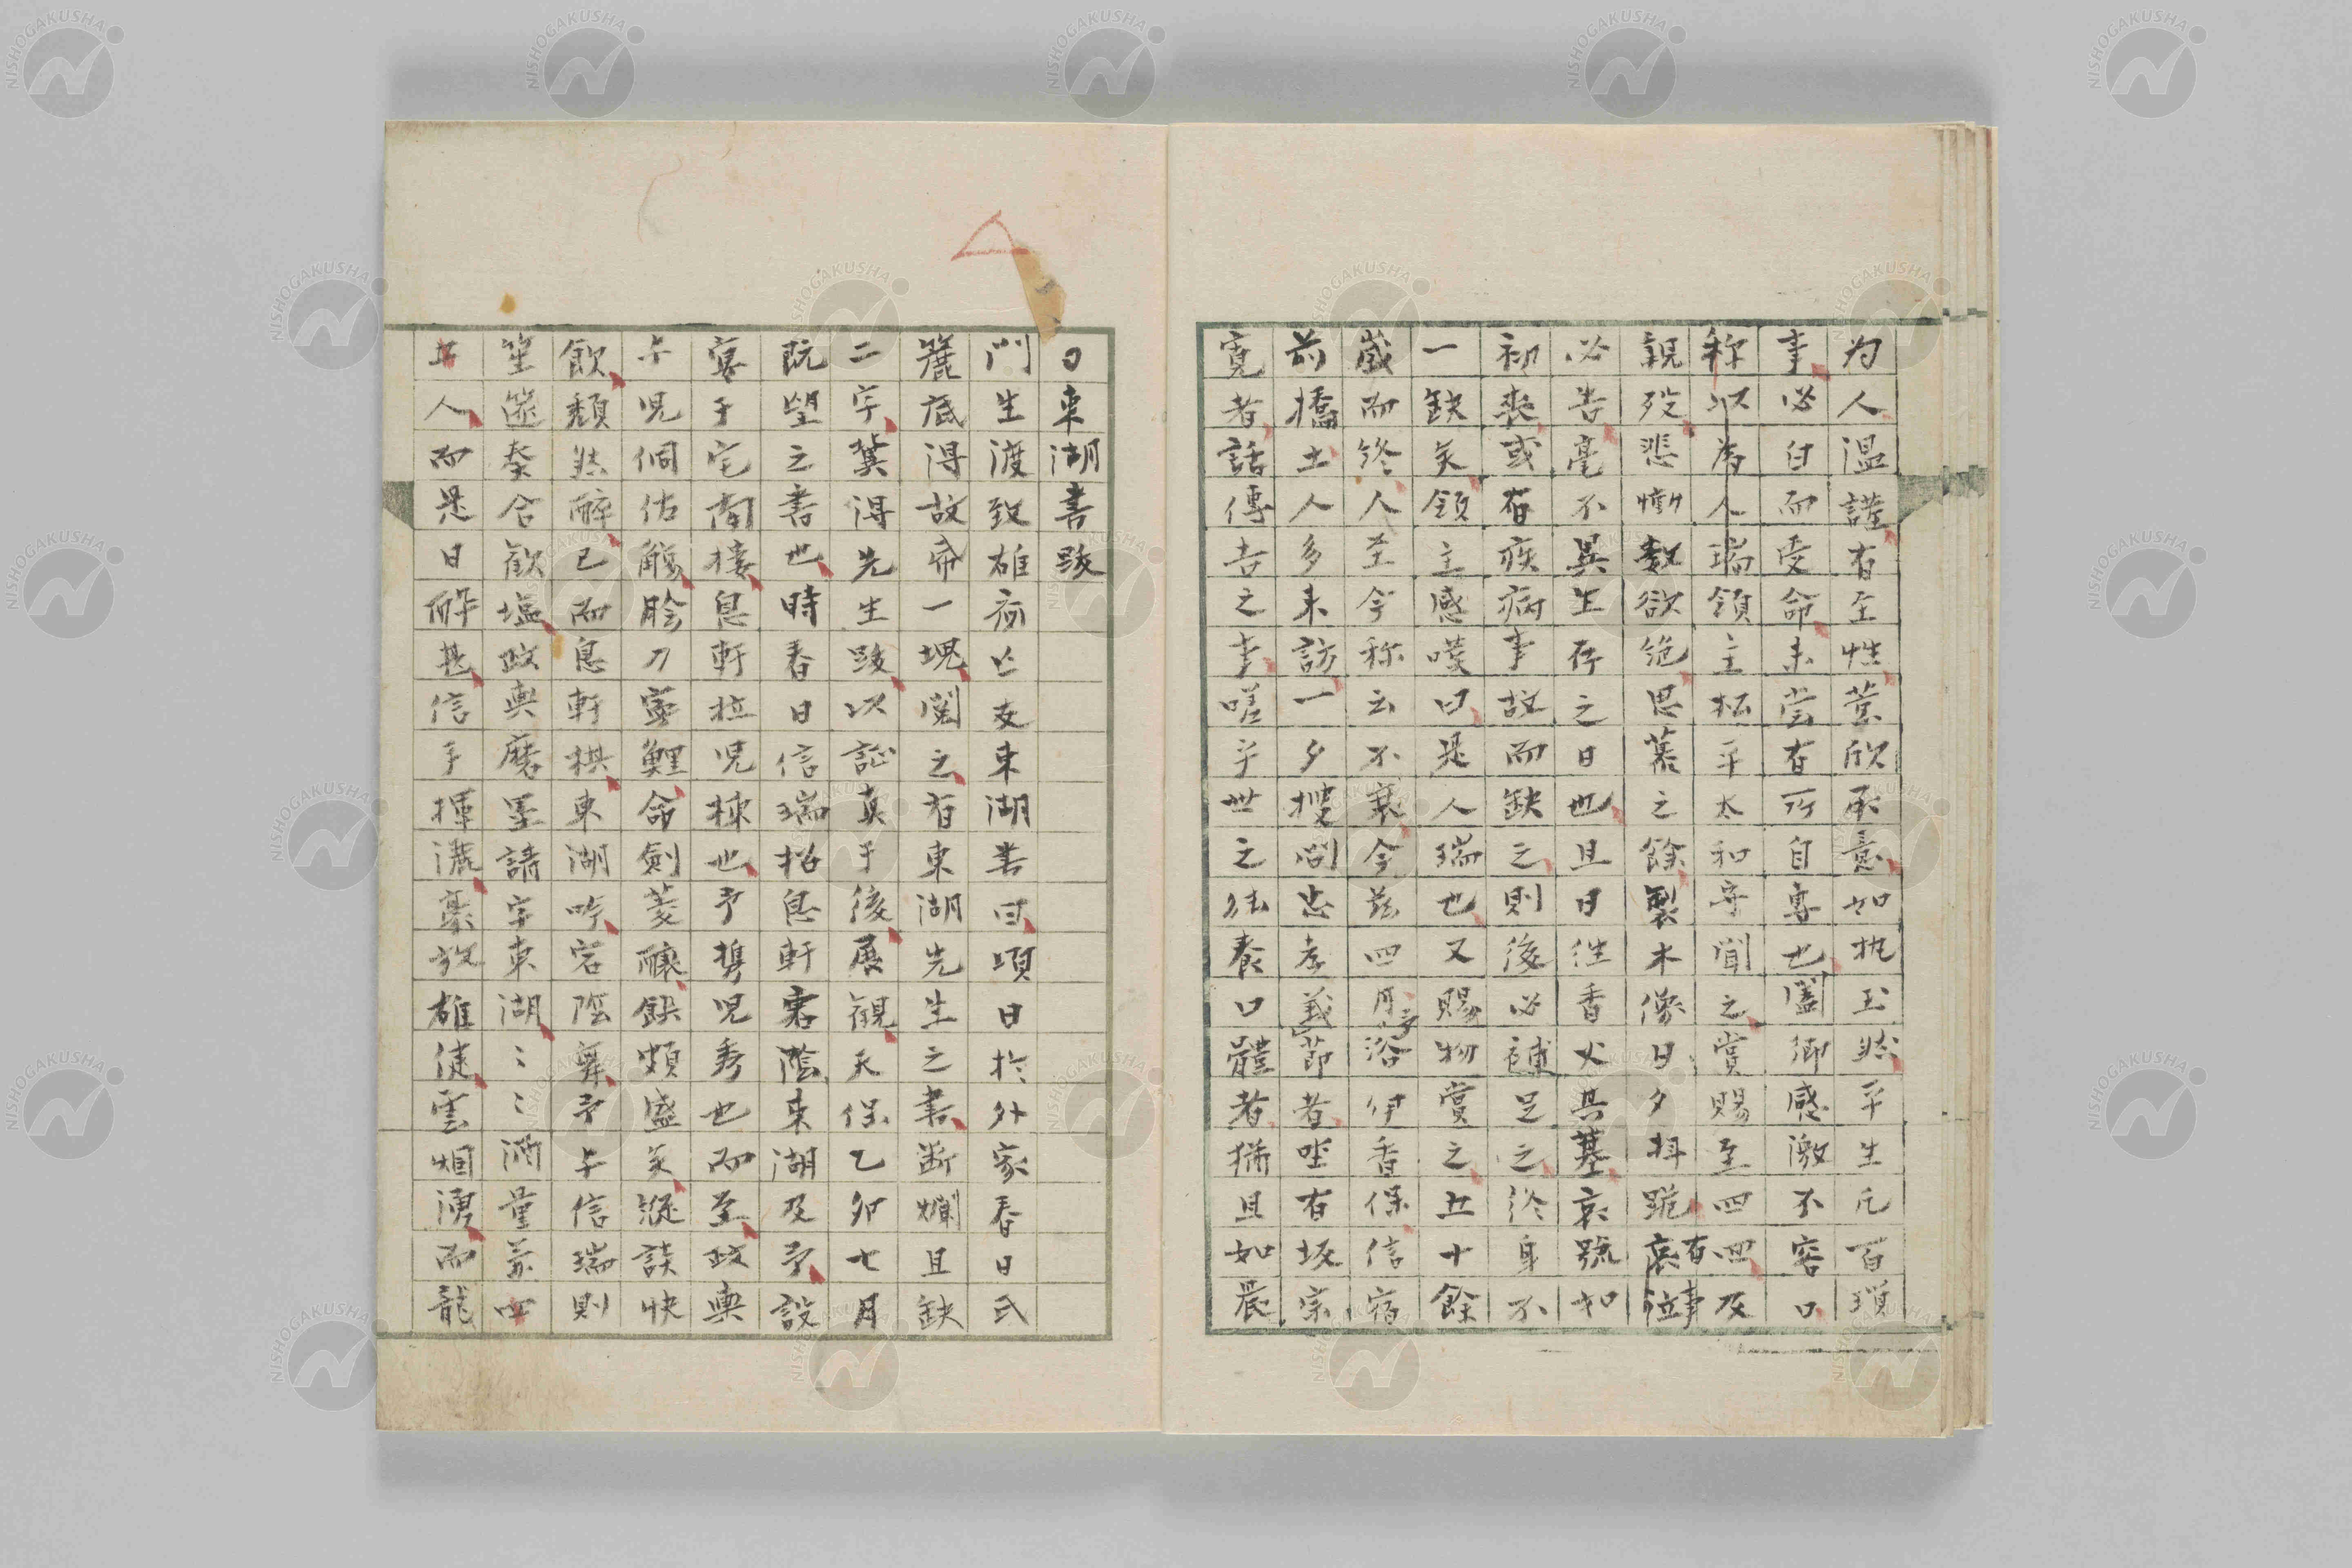 为人温謹有至性薏欣承意如执玉然平生凡百瑣
事必白而受命未尝有所自專也闔鄉感激不容口
称以為人瑞領主松平太和守聞之賞賜至四四及
親歿悲慟數欲絶思慕之餘製木像日夕拝跪有事
哀位
必告毫不異生存之日也且日往香火其墓哀號如
初喪或有疾病事故而缺之則後必補足之终身不
一缺矣領主感嘆曰是人瑞也又賜物賞之五十餘
歲而终人至今称云不衰今茲四月予浴伊香保信宿
前橋土人多来訪一夕搜問忠孝義節者坐有坂宗
寛者話傳吉之事嗟乎世之徒養口體者猶且如晨
東湖書跋
門生渡致雄病亡友東湖書曰頃日於外家春日氏
簏底得故帋一塊閲之有東湖先生之書断爛且缺
二字冀得先生跋以証真于後展觀天保乙卯七月
既望之書也時春日信瑞招息軒宕陰東湖及予設
宴于宅南接息軒拉児棟也予携児秀也而至政輿
与児侗佐觴膾刀宰鯉命劍菱釀饌頗盛矣縱談快
飲頽然醉已而息軒棋東湖吟宕陰舞予与信瑞則
笙篴奏合歓塩政輿磨墨請字東湖〻〻酒量兼四
五人而是日醉甚信手揮灑豪放雄健雲烟湧而龍
NISHOGAKUSHA